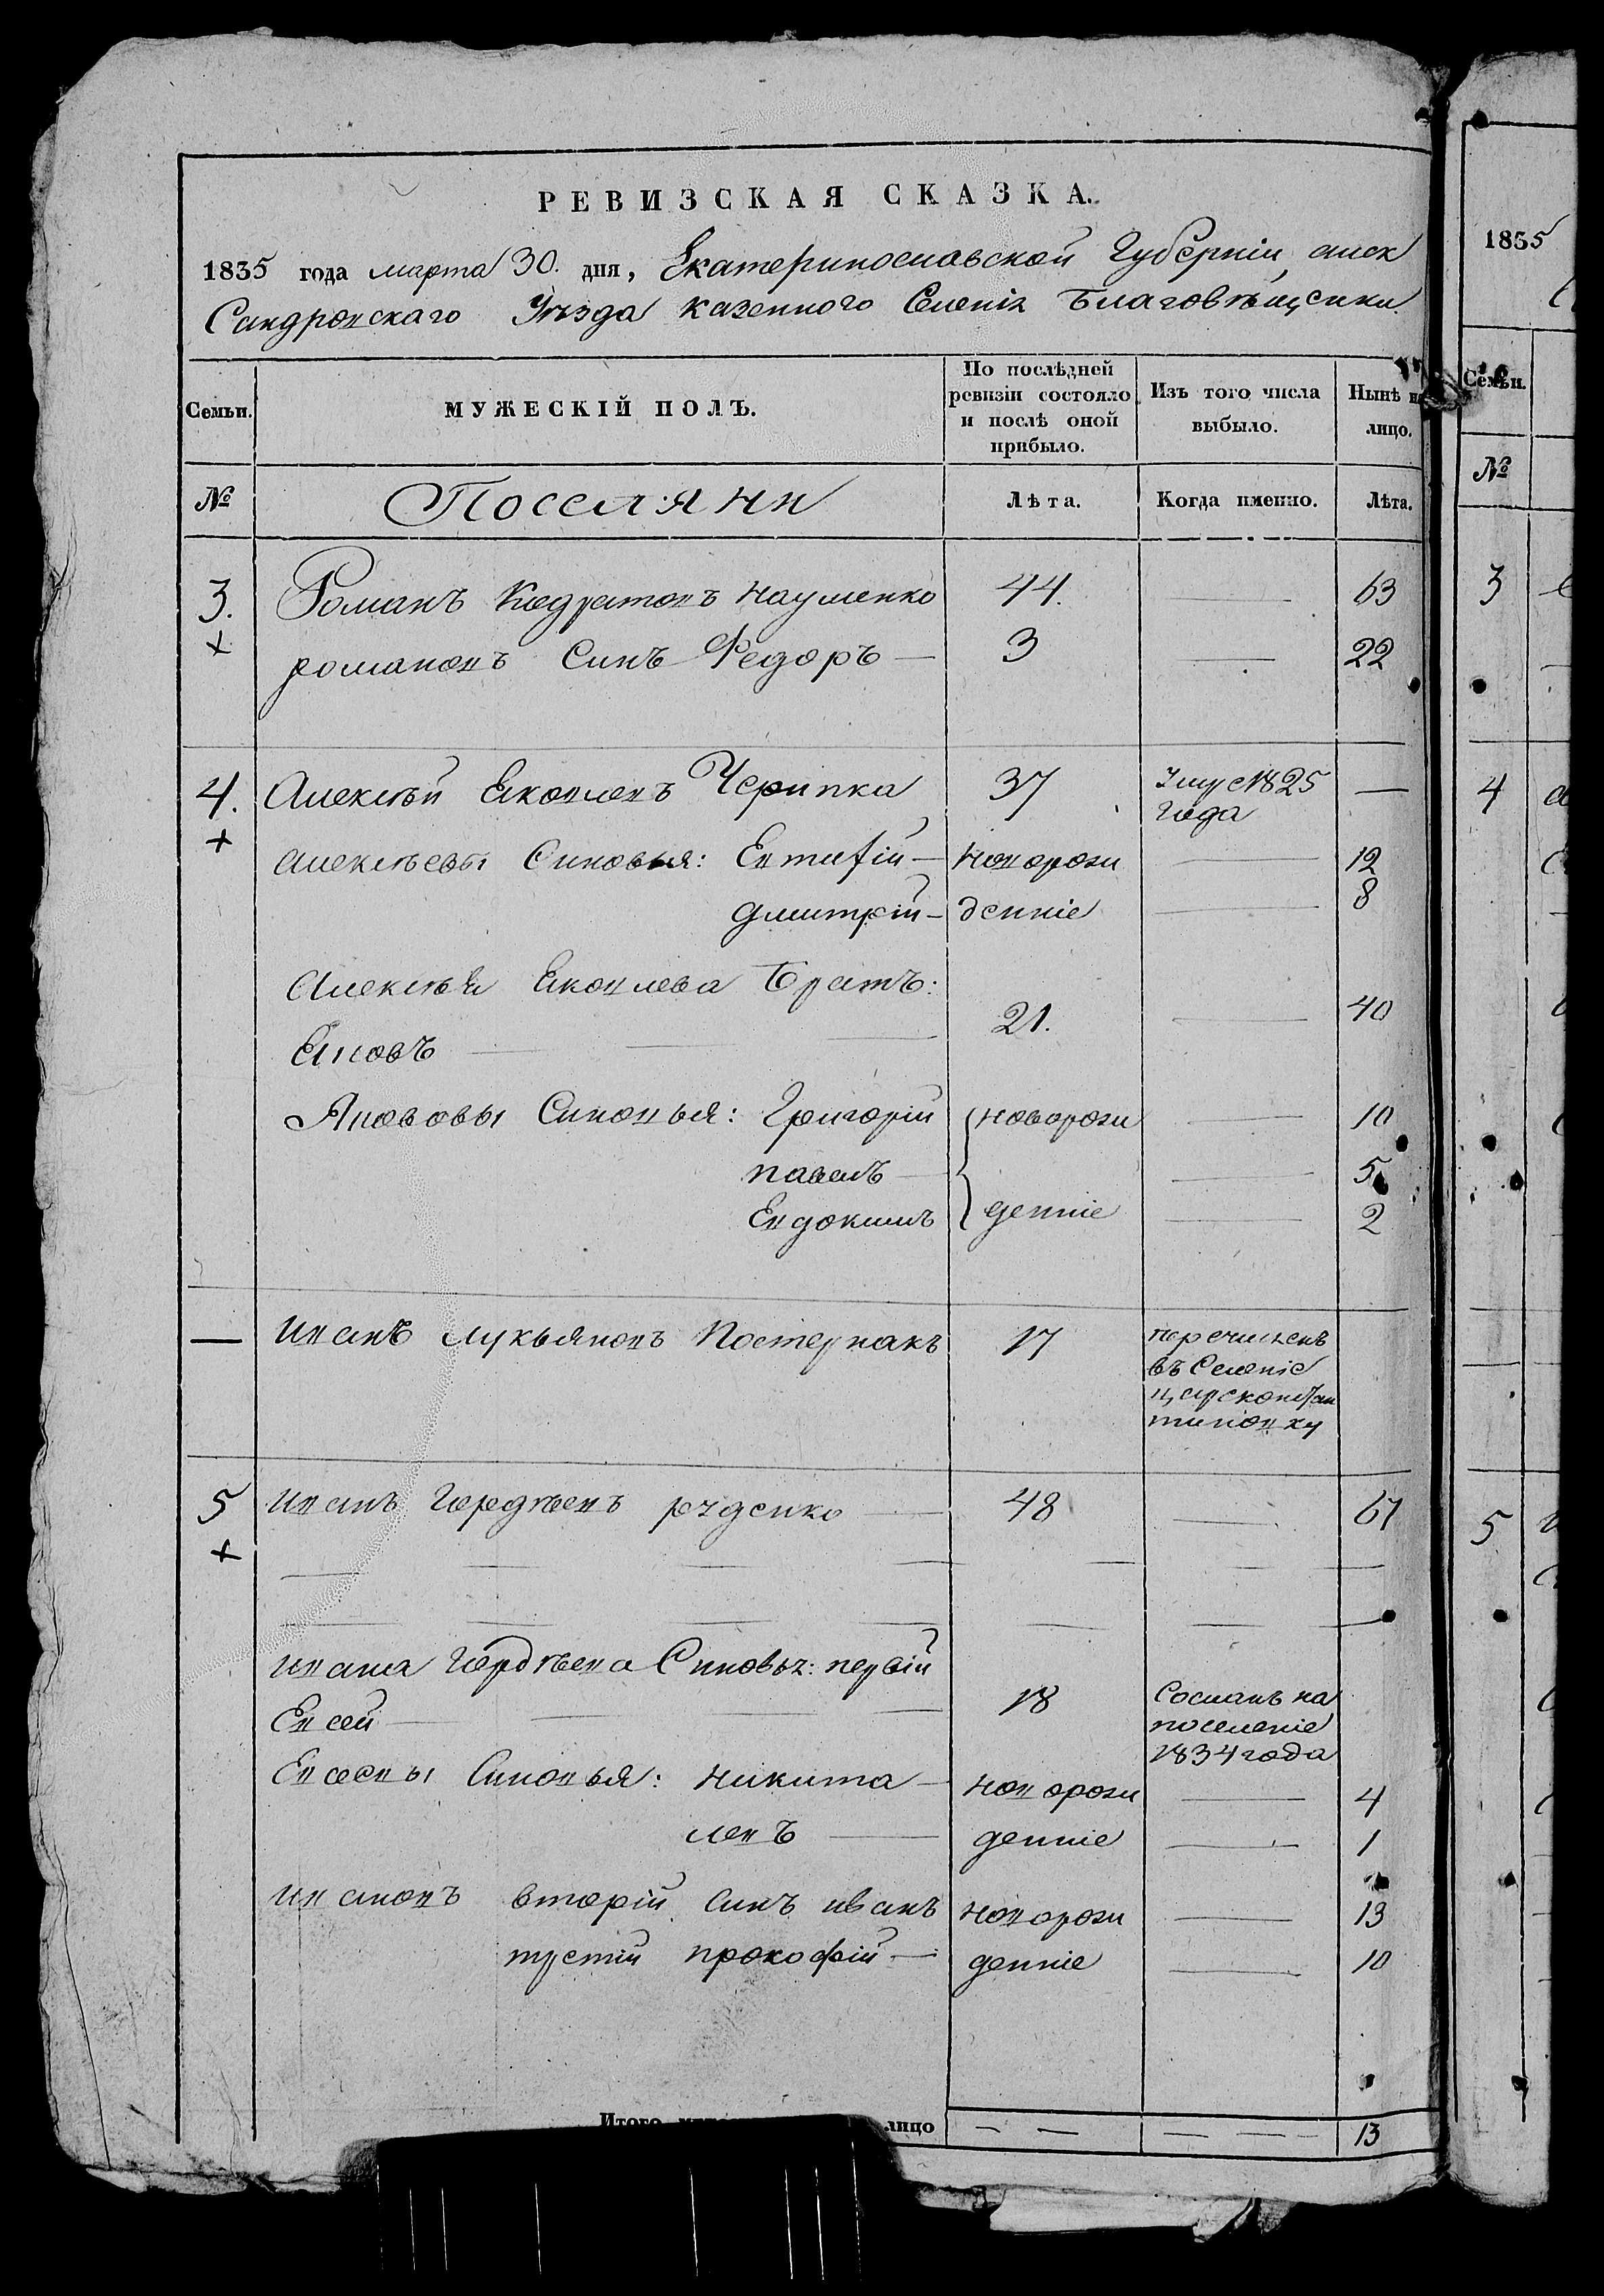 РЕВИЗСКАЯ СКАЗКА.
1835 года марта 30. дня, Екатеринославской Губерніи, алек
Сандровскаго Уѣзда казенного Селенія Благовѣщенки
Семьи. МУЖЕСКІЙ ПОЛЪ. По послѣдней ревизіи состояло и послѣ оной прибыло. Изъ того числа выбыло. Нынѣ на лицо.
№ Поселяни Лѣта. Когда именно. Лѣта.
3. Романъ Кодратовъ Науменко 44. — 63
романовъ Синъ Федоръ — 3 — 22
4. Алексѣй Яковлевъ Черипка 37 Умре 1825 года —
алексѣевы Синовья: Евтифій — новорож — 12
дмитрій — денніе — 8
Алексѣя Яковлева Братъ:
Яковъ — 21. — 40
Яковови Синовья: Григорій новорож — 10
павелъ — — 5
Евдокимъ денніе — 2
— Иванъ Лукьяновъ Постернакъ 17 перечисленъ
въ Селеніе
царсконстан
тиновку
5 Иванъ Гордѣевъ руденко — 48 — 67
ивана Гордѣева Синовья: первій
Евсей — 18 Сосланъ на
поселеніе
1834 года
Евсеевы Синовья: никита — новорож — 4
левъ — денніе — 1
ивановъ вторій синъ иванъ новорож — 13
третій прокофій — денніе — 10
Итого лицо — — — — — 13
1835
Семьи.
№
3
4
5